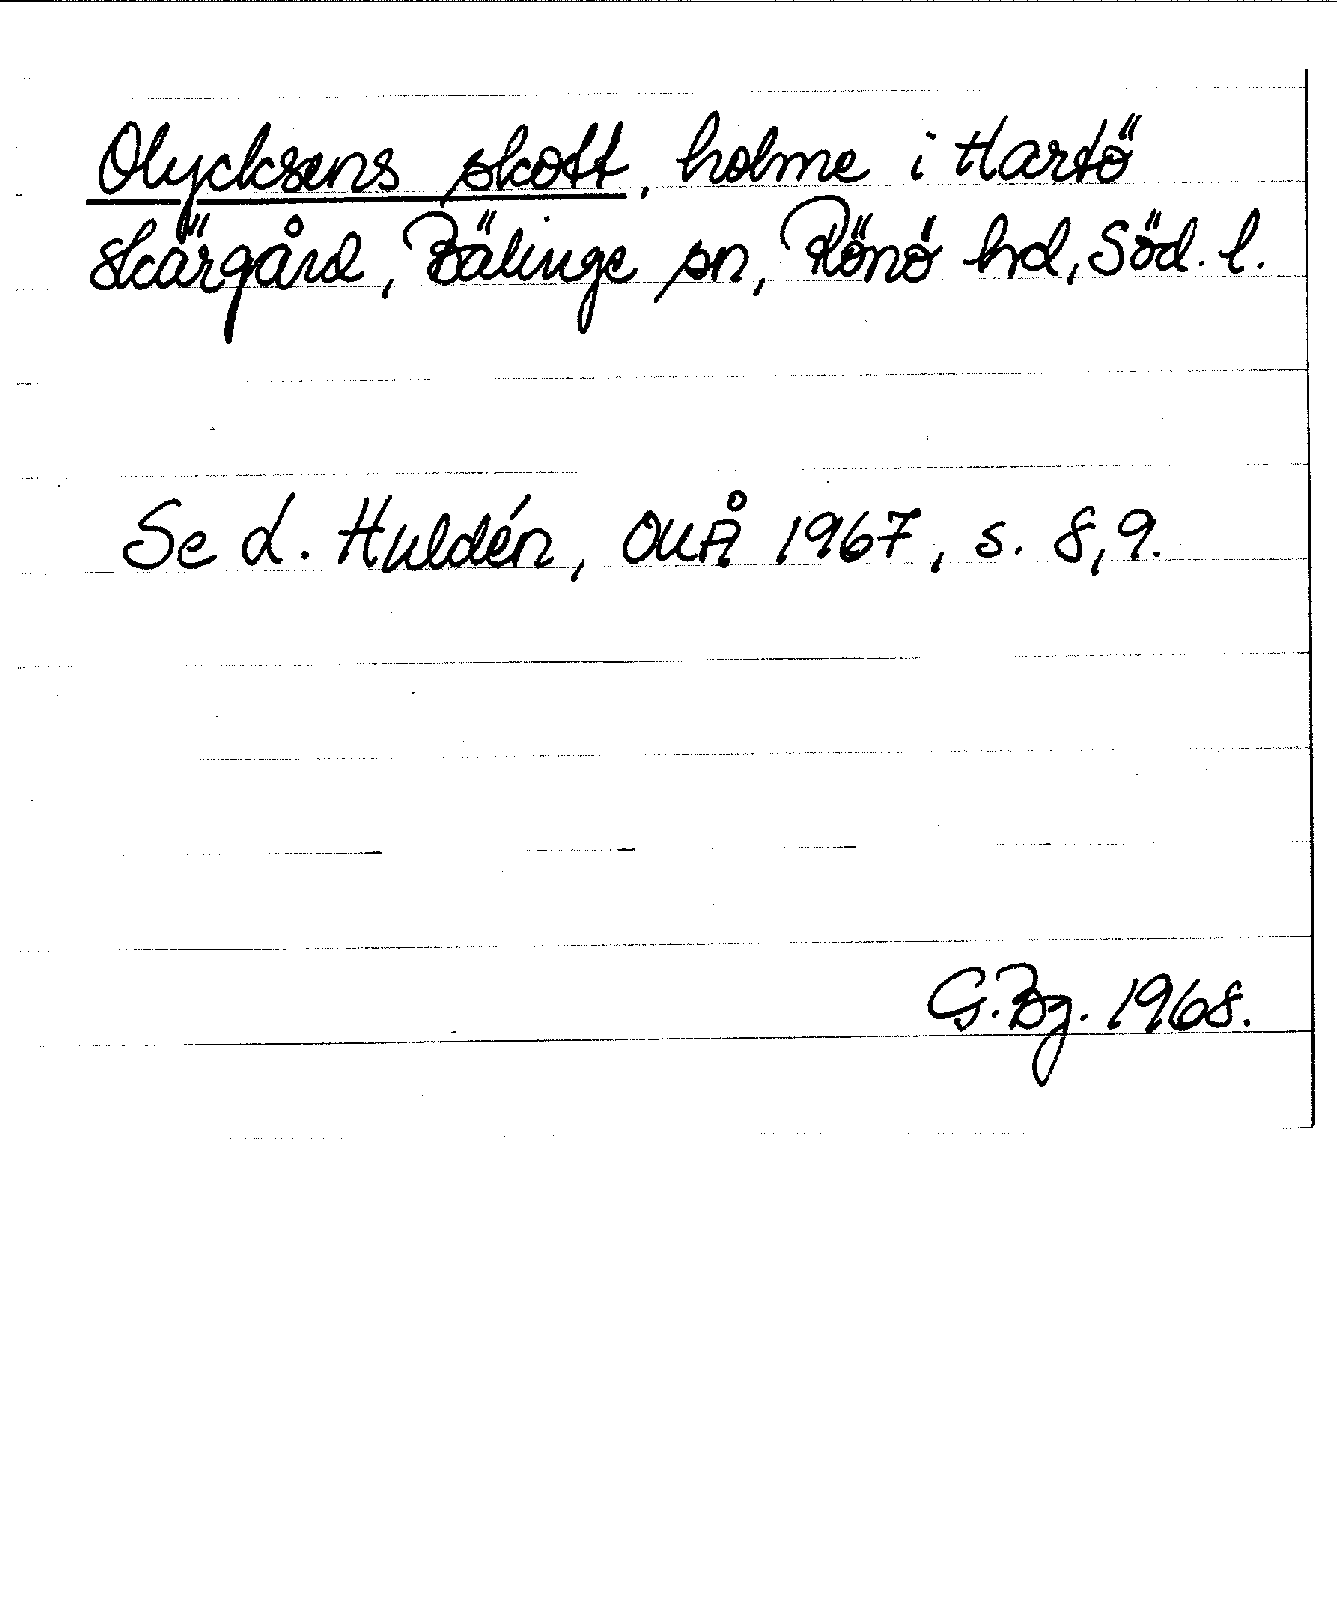 Olycksens skott, holme i Hartö
skärgård, Bälinge sn, Rönö hd, Söd. l.
Se d. Huldén, OUÅ 1967, s. 8, 9.
G. Bg. 1968.